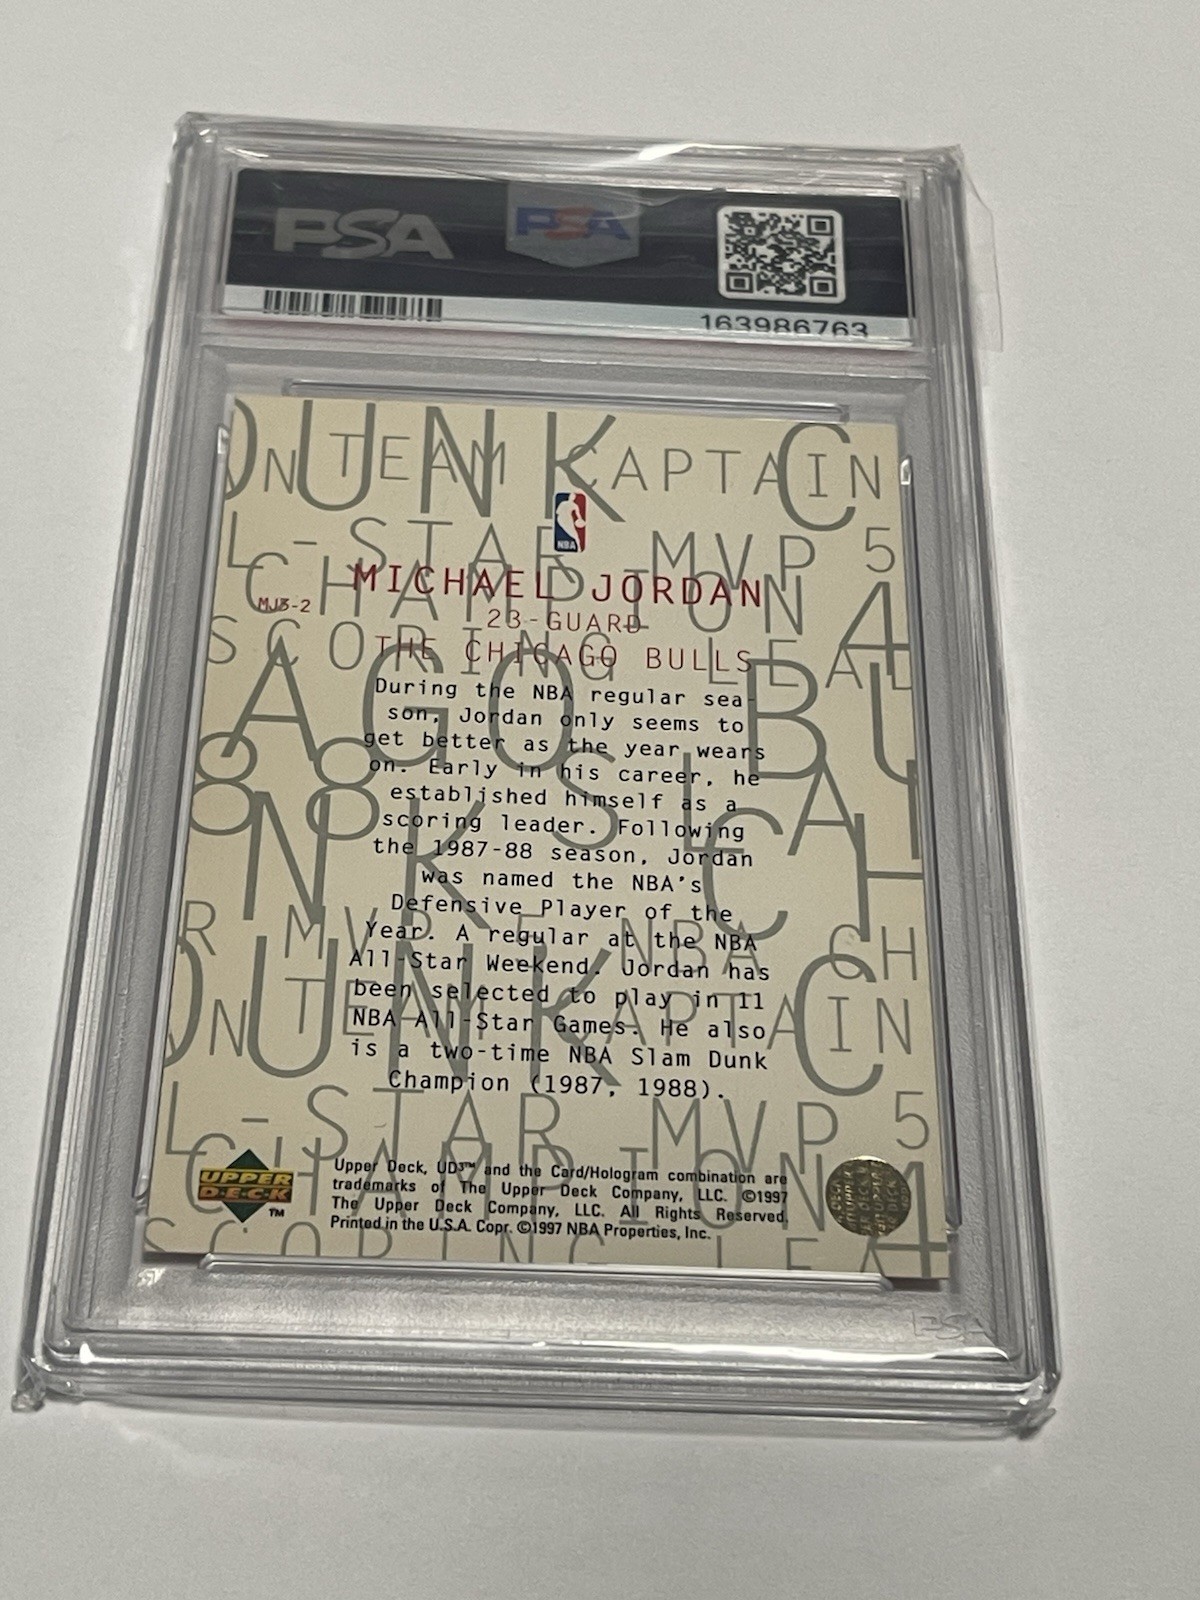 PSA
PSA
163986763
DUNK C
ON TEAM CAPTAIN
NBA
L-STAR MVP 5
CHAMPION 4
MICHAEL JORDAN
MJ3-2
23-GUARD
SCORING LEAD
THE CHICAGO BULLS
AGO BU
During the NBA regular sea-
son, Jordan only seems to
get better as the year wears
on. Early in his career, he
88 S LCAL
established himself as a
scoring leader. Following
the 1987-88 season, Jordan
NK CH
was named the NBA's
Defensive Player of the
R MVP 5 NBA CH
Year. A regular at the NBA
All-Star Weekend, Jordan has
DUNK C
been selected to play in 11
ON TEAM CAPTAIN
NBA All-Star Games. He also
is a two-time NBA Slam Dunk
Champion (1987, 1988).
L-STAR MVP 5
CHAMPION 4
UPPER
DECK
TM
Upper Deck, UD3™ and the Card/Hologram combination are
trademarks of The Upper Deck Company, LLC. ©1997
The Upper Deck Company, LLC. All Rights Reserved.
Printed in the U.S.A. Copr. ©1997 NBA Properties, Inc.
SCORING LEA
PSA